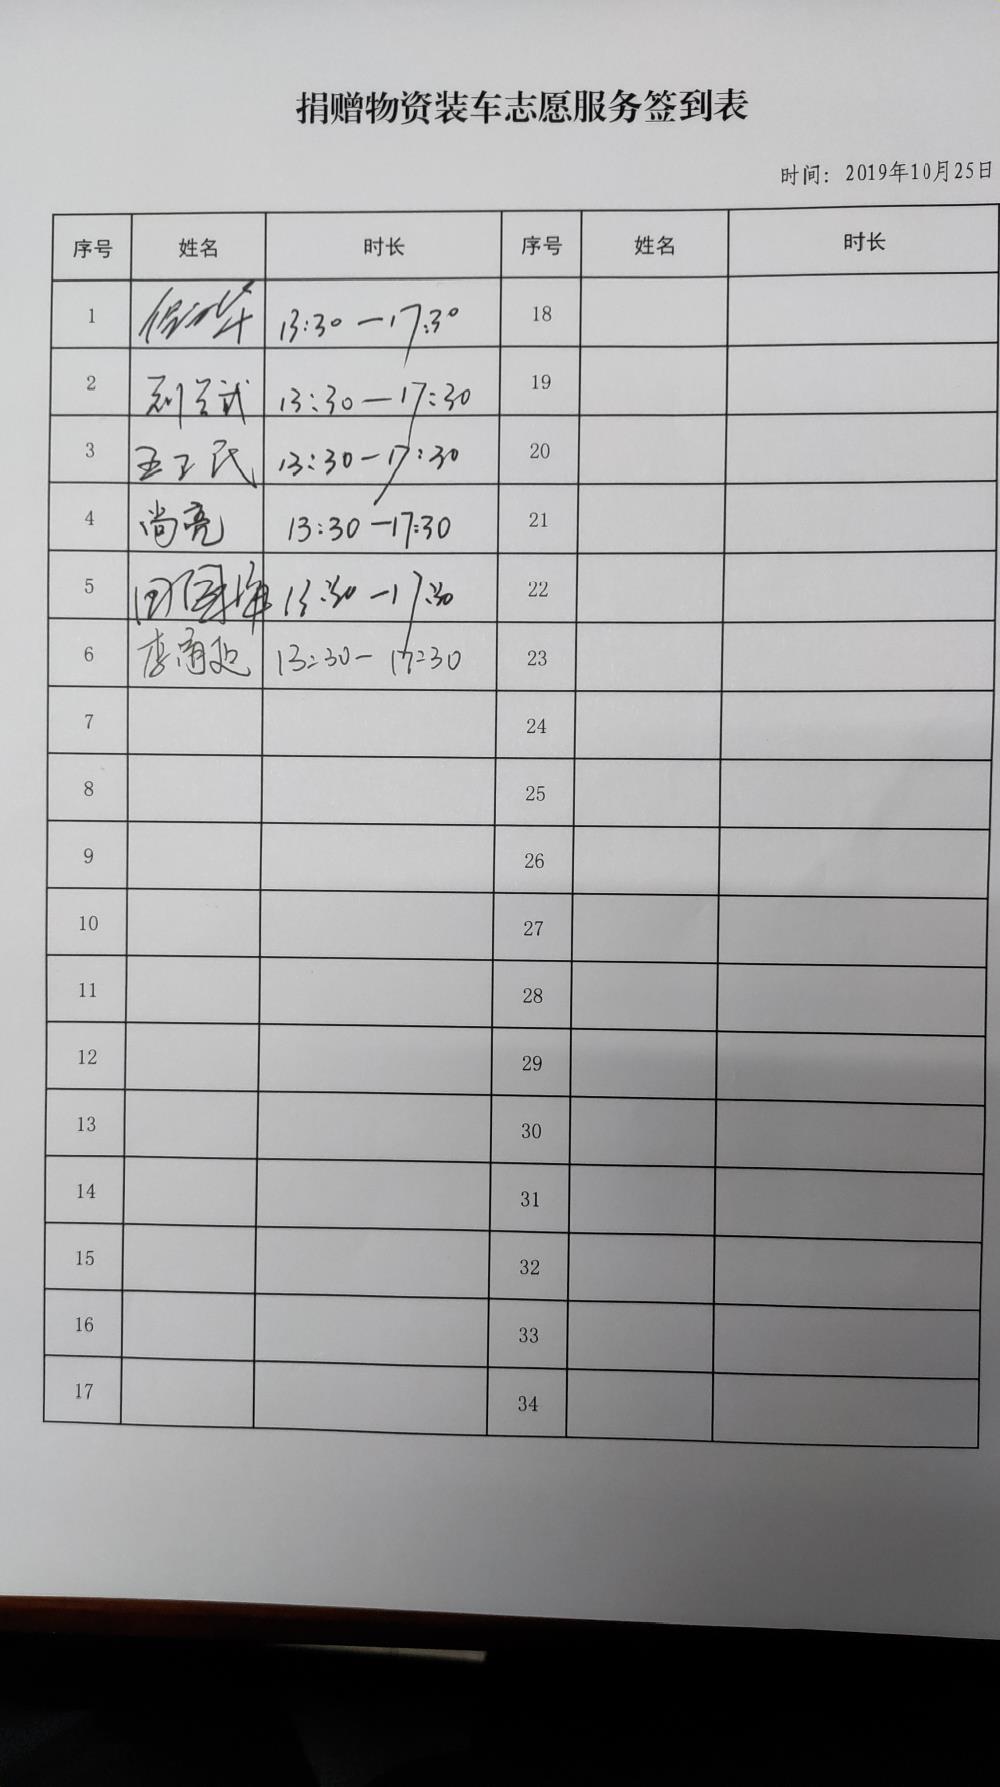 捐赠物资装车志愿服务签到表
时间：2019年10月25日
序号 姓名 时长 序号 姓名 时长
1 13:30—17:30 18
2 13:30—17:30 19
3 13:30—17:30 20
4 尚亮 13:30—17:30 21
5 13:30—17:30 22
6 13:30—17:30 23
7 24
8 25
9 26
10 27
11 28
12 29
13 30
14 31
15 32
16 33
17 34